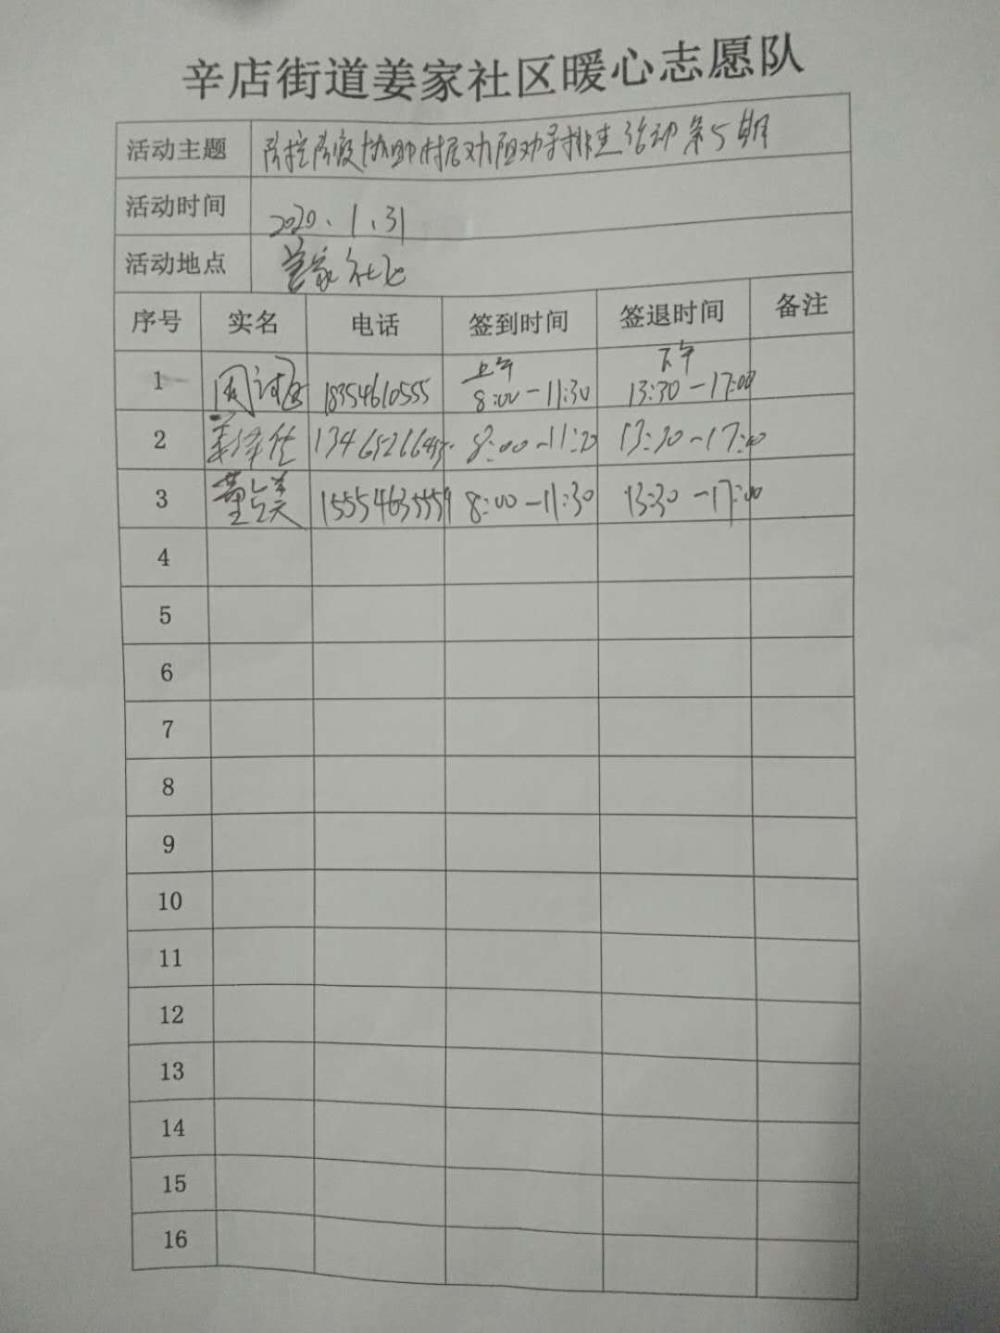 辛店街道姜家社区暖心志愿队
活动主题 防控防疫协助村居劝阻劝导排查活动第5期
活动时间 2020.1.31
活动地点 姜家社区
序号 实名 电话 签到时间 签退时间 备注
1 周 18354610555 上午 8:00-11:30 下午 13:30-17:00
2 姜 8:00-11:30 13:30-17:00
3 董 15554635559 8:00-11:30 13:30-17:00
4
5
6
7
8
9
10
11
12
13
14
15
16